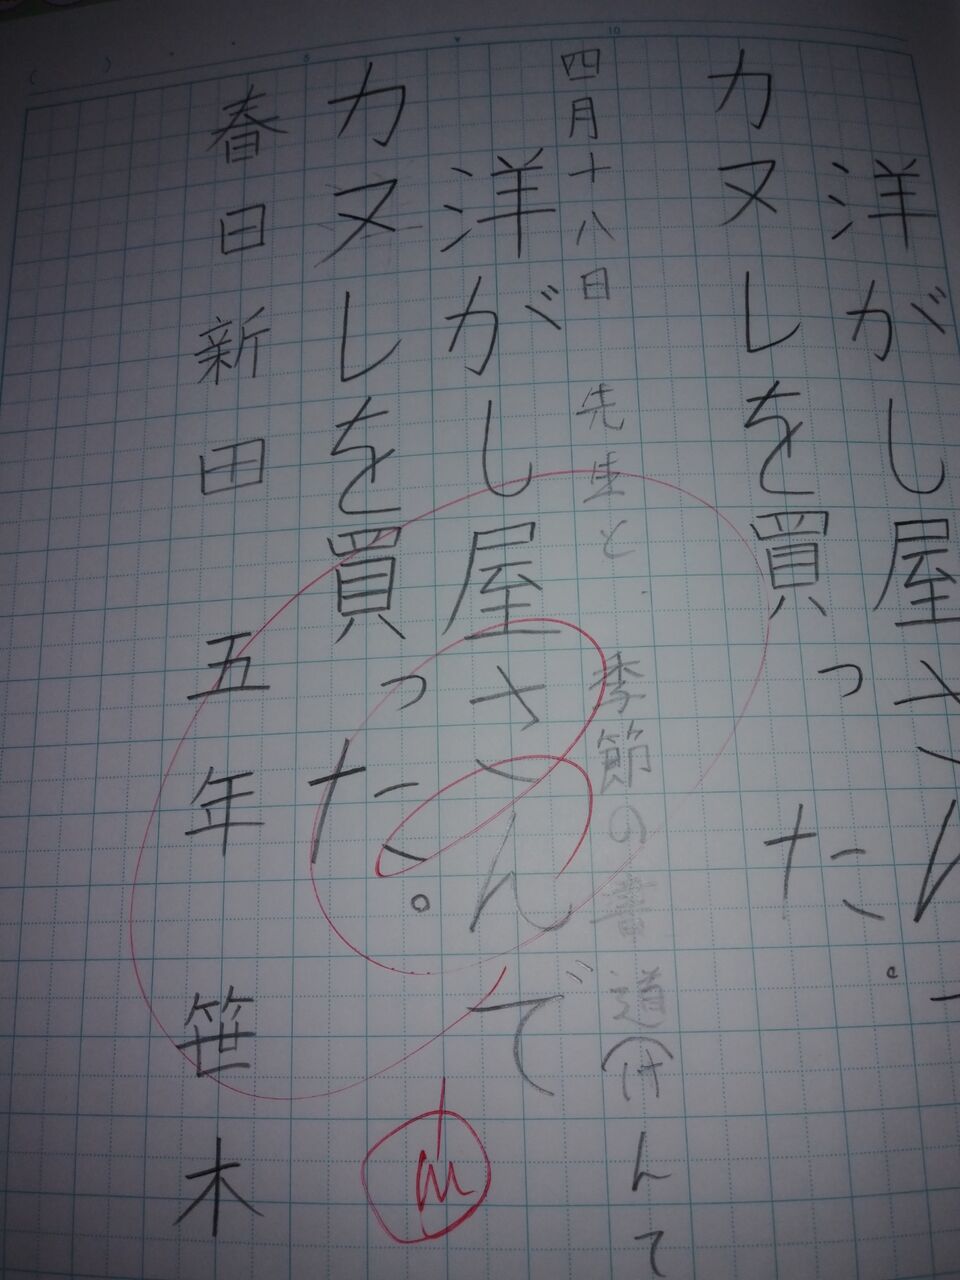 洋がし屋さんで
カヌレを買った。
四月十八日 先生と 季節の
洋がし屋さんで
カヌレを買った。
春日新田 五年 笹木
10